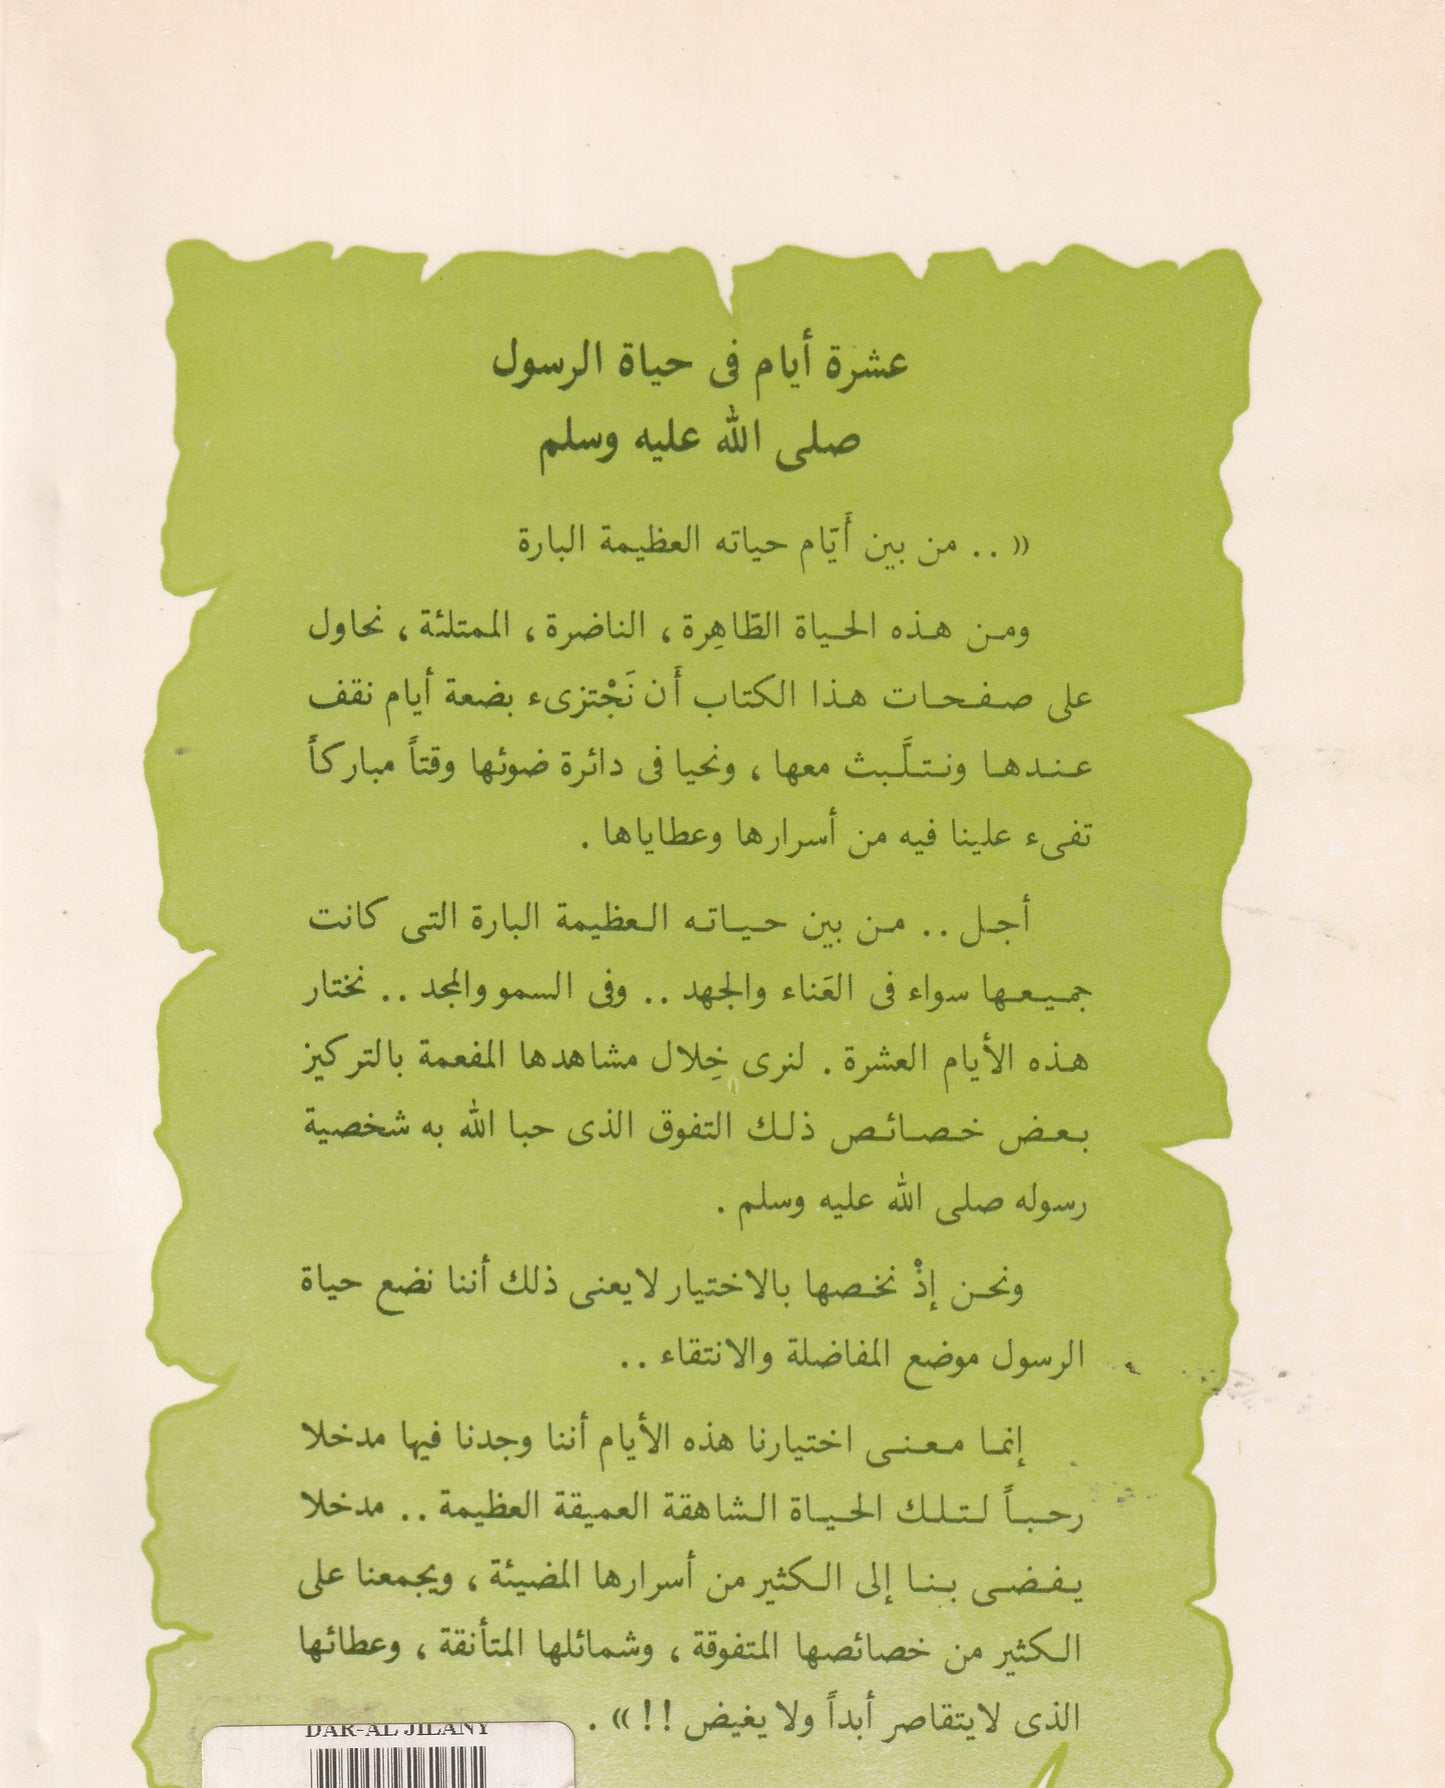 عشرة أيام فى حياة الرسول
صلى الله عليه وسلم
« .. من بين أَيّام حياته العظيمة البارة
ومن هذه الحياة الطّاهِرة ، الناضرة ، الممتلئة ، نحاول
على صفحات هذا الكتاب أَن نَجْتزىء بضعة أيام نقف
عندها ونتلَّبث معها ، ونحيا فى دائرة ضوئها وقتاً مباركاً
تفىء علينا فيه من أسرارها وعطاياها .
أجل .. من بين حياته العظيمة البارة التى كانت
جميعها سواء فى العَناء والجهد .. وفى السمو والمجد .. نختار
هذه الأيام العشرة . لنرى خِلال مشاهدها المفعمة بالتركيز
بعض خصائص ذلك التفوق الذى حبا الله به شخصية
رسوله صلى الله عليه وسلم .
ونحن إذْ نخصها بالاختيار لايعنى ذلك أننا نضع حياة
الرسول موضع المفاضلة والانتقاء ..
إنما معنى اختيارنا هذه الأيام أننا وجدنا فيها مدخلا
رحباً لتلك الحياة الشاهقة العميقة العظيمة .. مدخلا
يفضى بنا إلى الكثير من أسرارها المضيئة ، ويجمعنا على
الكثير من خصائصها المتفوقة ، وشمائلها المتأنقة ، وعطائها
الذى لايتقاصر أبداً ولا يغيض !! » .
DAR-AL JILANY